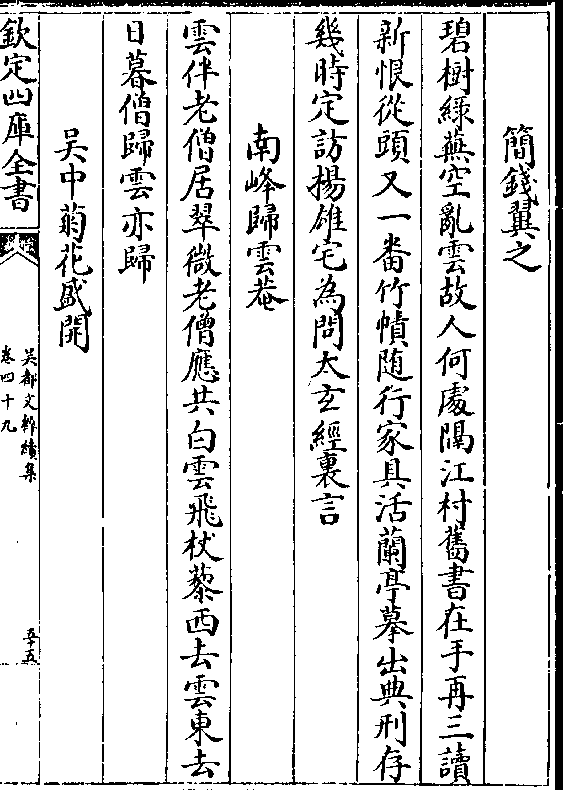 簡錢翼之
碧樹綠蕪空亂雲故人何處隔江村舊書在手再三讀
新恨從頭又一番竹幘随行家具活蘭亭摹出典刑存
幾時定訪揚雄宅為問太玄經裏言
南峰歸雲菴
雲伴老僧居翠微老僧應共白雲飛杖藜西去雲東去
日暮僧歸雲亦歸
吳中菊花盛開
欽定四庫全書
吳都文粹續集
卷四十九
五十五